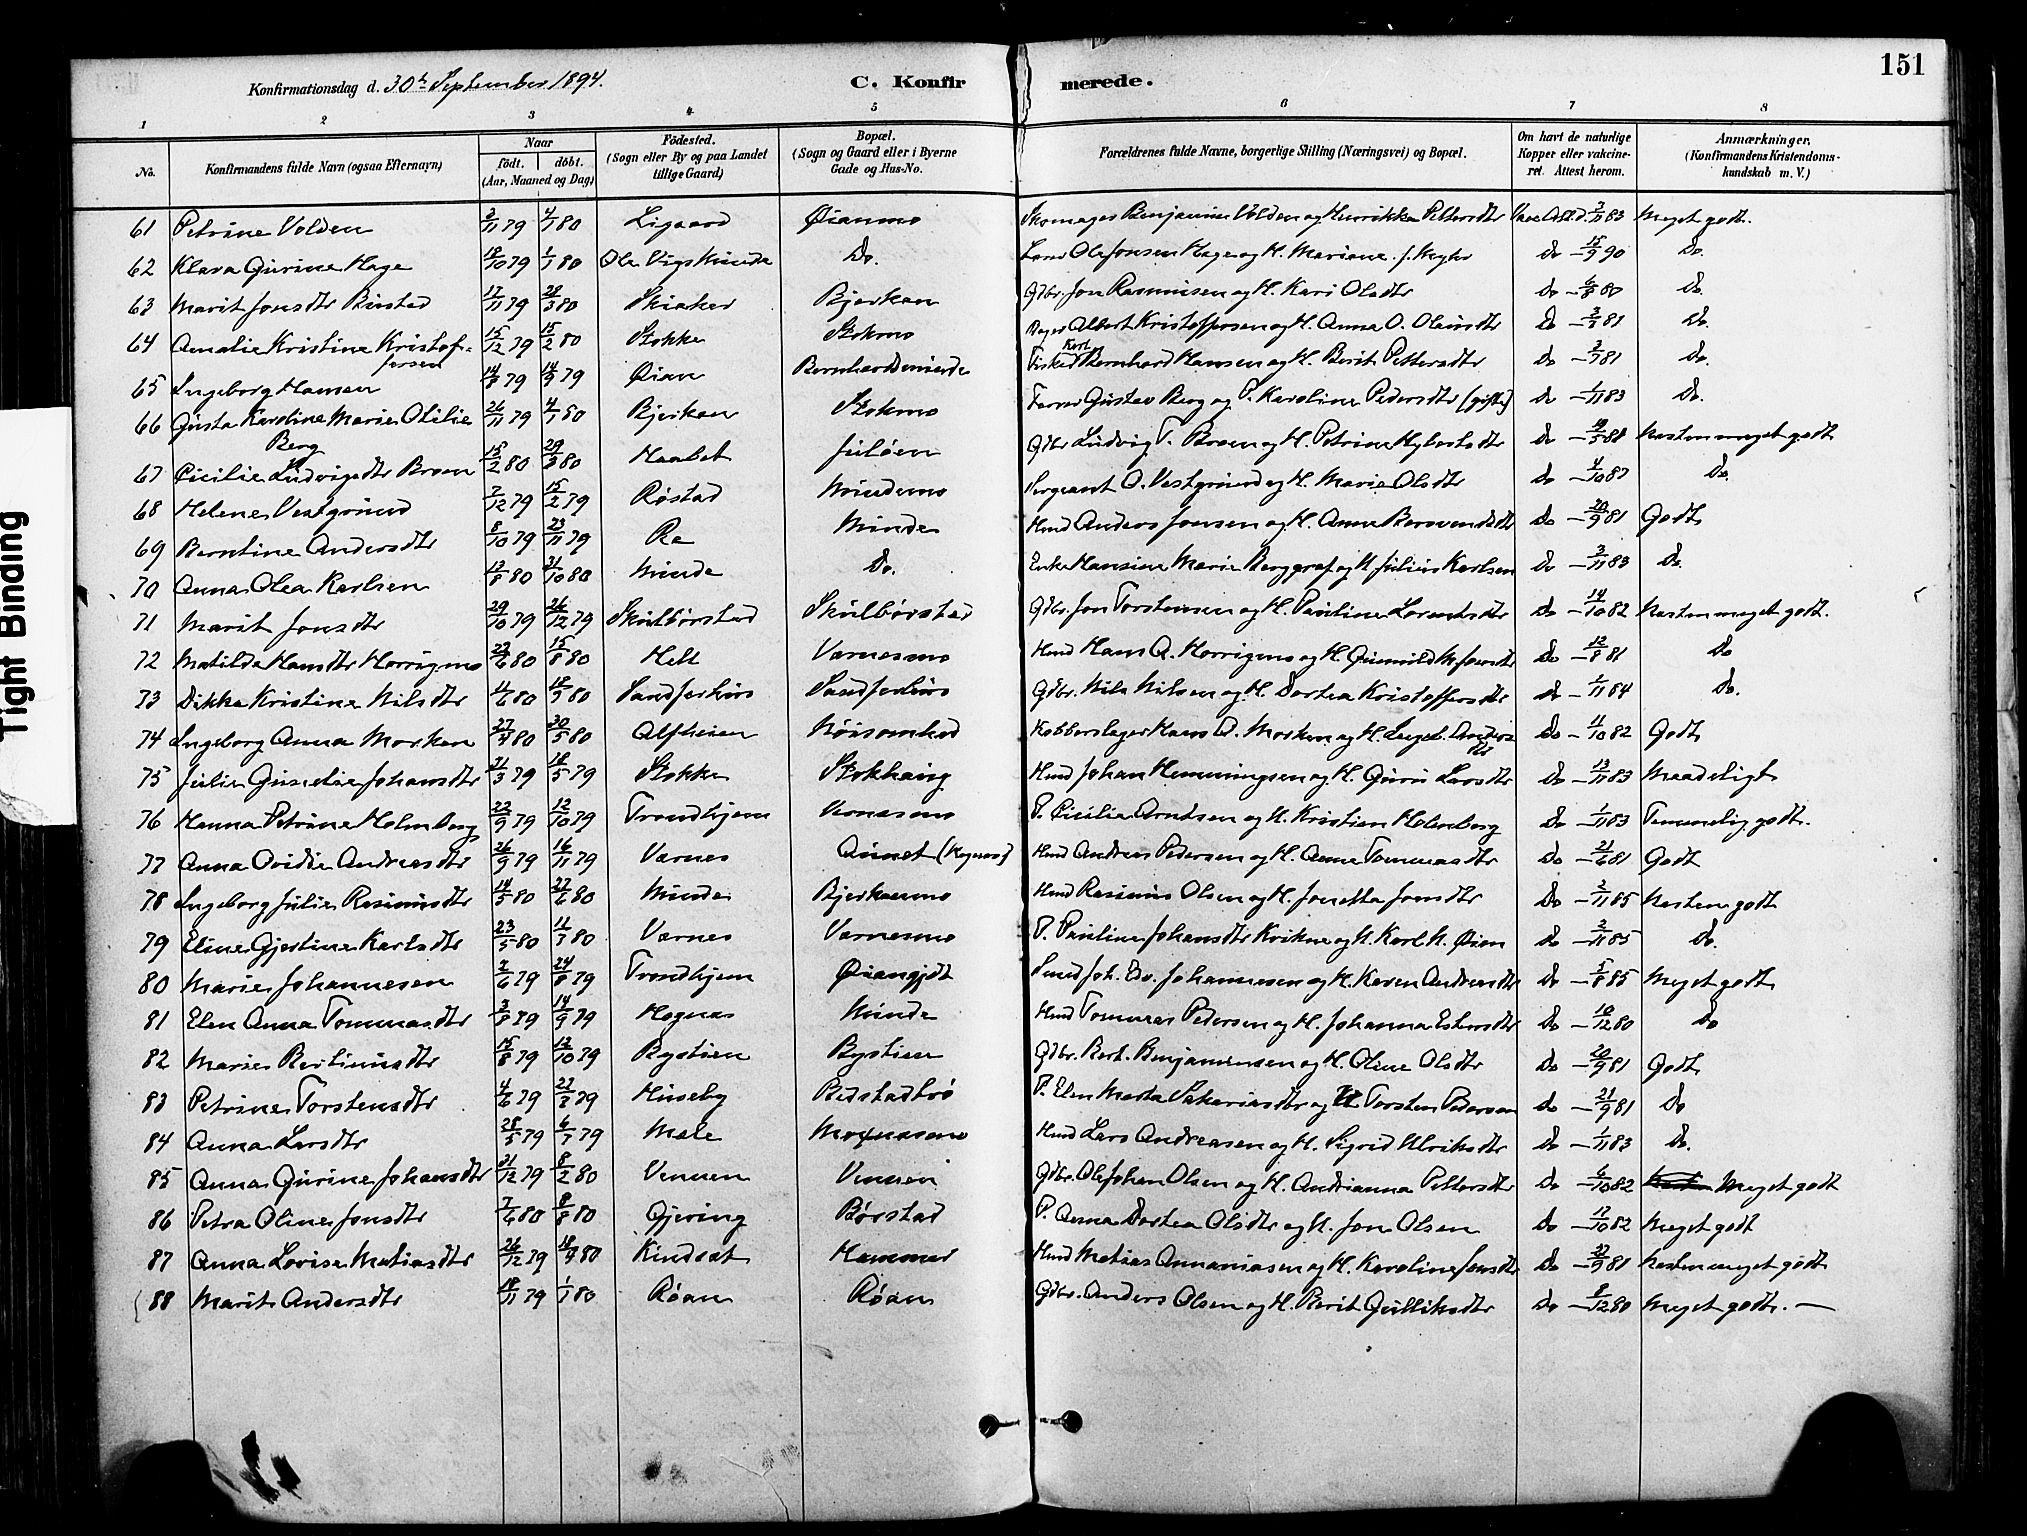 151
Konfirmationsdag d. 30te September 1894.
C. Konfirmerede.
1 2 3 4 5 6 7 8
No. Konfirmandens fulde Navn (ogsaa Efternavn) Naar født. døbt. (Aar, Maaned og Dag) Fødested. (Sogn eller By og paa Landet tillige Gaard) Bopæl. (Sogn og Gaard eller i Byerne Gade og Hus-No. Forældrenes fulde Navne, borgerlige Stilling (Næringsvei) og Bopæl. Om havt de naturlige Kopper eller vakcineret. Attest herom. Anmærkninger, (Konfirmandens Kristendomskundskab m. V.)
61 Petrine Volden 3/11 79 4/1 80 Ligaard Øianmo Skomager Benjamin Volden og Henrikka Pettersdtr Vacc. Att. d. 3/11 83 Meget godt.
62 Klara Gurine Hage 18/10 79 1/1 80 Do. Ole Jonsen Hage og H. Mariane Do – 15/9 90 Do.
63 Marit Jonsdtr 17/11 79 28/3 80 Skiaker Bjerkan Gdbr. Jon Rasmusen og H. Kari Olsdtr Do – 6/8 80 Do.
64 Amalie Kristine Kristofersen 15/12 79 15/2 80 Stokke Stokmo Albert Kristoffersen og H. Anna O. Do – 3/7 81 Do.
65 Ingeborg Hansen 14/8 79 14/9 79 Øian Karl Bernhard Hansen og H. Berit Pettersdtr Do – 3/7 81 Do.
66 Gusta Karoline Marie Otilie Berg 26/11 79 4/1 80 Bjerkan Stokmo Gustav Berg og P. Karoline Pedersdtr (gifte) Do – 1/11 83 Do.
67 Cicilie Ludvigsdtr Braen 18/2 80 29/3 80 Gdbr. Ludvig T. Braen og H. Petrine Do 88 Næsten meget godt
68 Helene Vestgrind 7/12 79 15/2 79 Røstad Mindemo Sergeant O. Vestgrind og H. Marie Olsdtr Do – 4/10 87 Do.
69 Berntine Andersdtr 8/10 79 23/11 79 Re Minde Hmd Anders Jonsen og H. Anne Do – 20/9 81 Godt
70 Anna Olea Karlsen 13/8 80 31/10 80 Minde Do. Enke Hansine Marie Berggraf og U. Julius Karlsen Do – 3/11 83 Do.
71 Marit Jonsdtr 29/10 79 26/12 79 Skulbørstad Skulbørstad Gdbr. Jon Torstensen og H. Pauline Lorentsdtr Do – 14/10 82 Næsten meget godt.
72 Matilda Hansdtr Horrigmo 22/6 80 15/8 80 Hell Varnesmo Hmd Hans A. Horrigmo og H. Gunnild Do – 12/8 81 Do
73 Dikka Kristine Nilsdtr 4/6 80 18/9 80 Sandferhus Sandferhus Gdbr. Nils Nilsen og H. Dortea Kristoffersdtr Do – 1/11 84 Do.
74 Ingeborg Anna Morken 27/4 80 30/5 80 Alfheim Kobberslager Hans A. Morken og H. Ingeb. Andersdtr Do – 4/10 82 Godt
75 Julie Gunelie Johansdtr 21/3 79 18/5 79 Stokke Stokhaug Hmd Johan Hemmingsen og H. Guru Larsdtr Do – 13/11 83 Maadeligt
76 Hanna Petrine Holmberg 22/9 79 12/10 79 Trondhjem Varnesmo P. Cicilia Arntsen og U. Kristian Holmberg Do – 1/11 83 Temmelig godt.
77 Anna Ovidie Andreasdtr 26/9 79 16/11 79 Varnes Hmd Andreas Pedersen og H. Anne Tommasdtr Do – 21/6 81 Godt
78 Ingeborg Julie Rasmusdtr 14/5 80 27/6 80 Minde Bjerkanmo Hmd Rasmus Olsen og H. Jonetta Jonsdtr Do – 2/11 85 Næsten godt
79 Eline Gjertine Karlsdtr 23/5 80 11/7 80 Varnes Varnesmo P. Pauline Johansdtr Kvikne og U. Karl N. Øien Do – 3/11 85 Do.
80 Marie Johannesen 2/6 79 24/8 79 Trondhjem Øiangjdt Smed Joh. Edv. Johannesen og H. Karen Andreasdtr Do – 5/8 85 Meget godt
81 Elen Anna Tommasdtr 3/8 79 14/9 79 Hognæs Minde Hmd Tommas Pedersen og H. Johanna Do – 10/12 80 Do
82 Marie Bertinusdtr 15/8 79 12/10 79 Bystien Bystien Gdbr. Bert. Benjaminsen og H. Oline Olsdtr Do – 20/9 81 Godt
83 Petrine Torstensdtr 4/6 79 79 Huseby P. Elen Marta Sakariasdtr og U. Torsten Pedersen Do – 21/9 81 Do
84 Anna Larsdtr 28/5 79 6/7 79 Mæle Moxnæsmo Hmd Lars Andreasen og H. Sigrid Ulriksdtr Do – 1/11 83 Do.
85 Anna Gurine Johansdtr 31/12 79 8/2 80 Vennen Gdbr. Ole Johan Olsen og H. Andrianna Pettersdtr Do – 6/10 82 Meget godt
86 Petra Oline Jonsdtr 7/6 80 8/8 80 Gjeving Børstad P. Anna Dortea Olsdtr og U. Jon Olsen Do – 17/10 82 Meget godt
87 Anna Lovise Matiasdtr 26/12 79 18/9 80 Kindset Hammer Hmd Matias Annaniasen og H. Karoline Jonsdtr Do – 22/9 81 Næsten meget godt
88 Marit Andersdtr 18/11 79 1/1 80 Røan Røan Gdbr. Anders Olsen og H. Berit Gulliksdtr Do – 8/12 80 Meget godt. —
Tight Binding